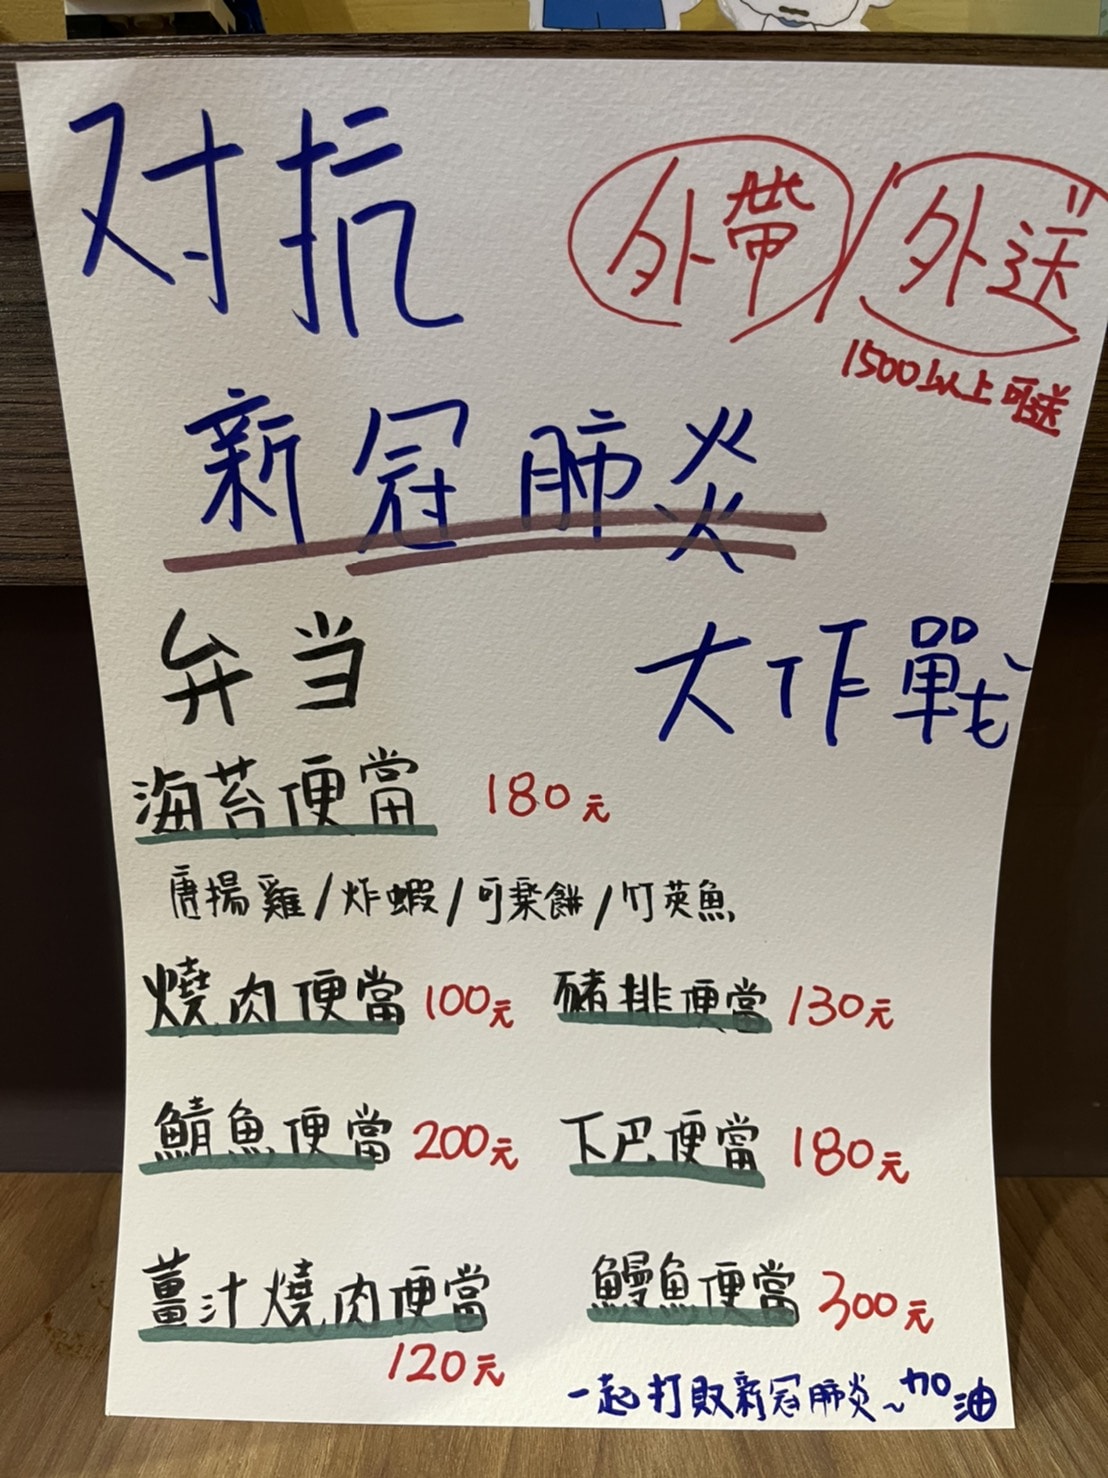 对抗
外帶/外送
1500以上可送
新冠肺炎
大作戰
弁当
海苔便當 180元
唐揚雞/炸蝦/可樂餅/竹莢魚
燒肉便當 100元 豬排便當 130元
鯖魚便當 200元 下巴便當 180元
薑汁燒肉便當 120元 鰻魚便當 300元
一起打敗新冠肺炎~加油